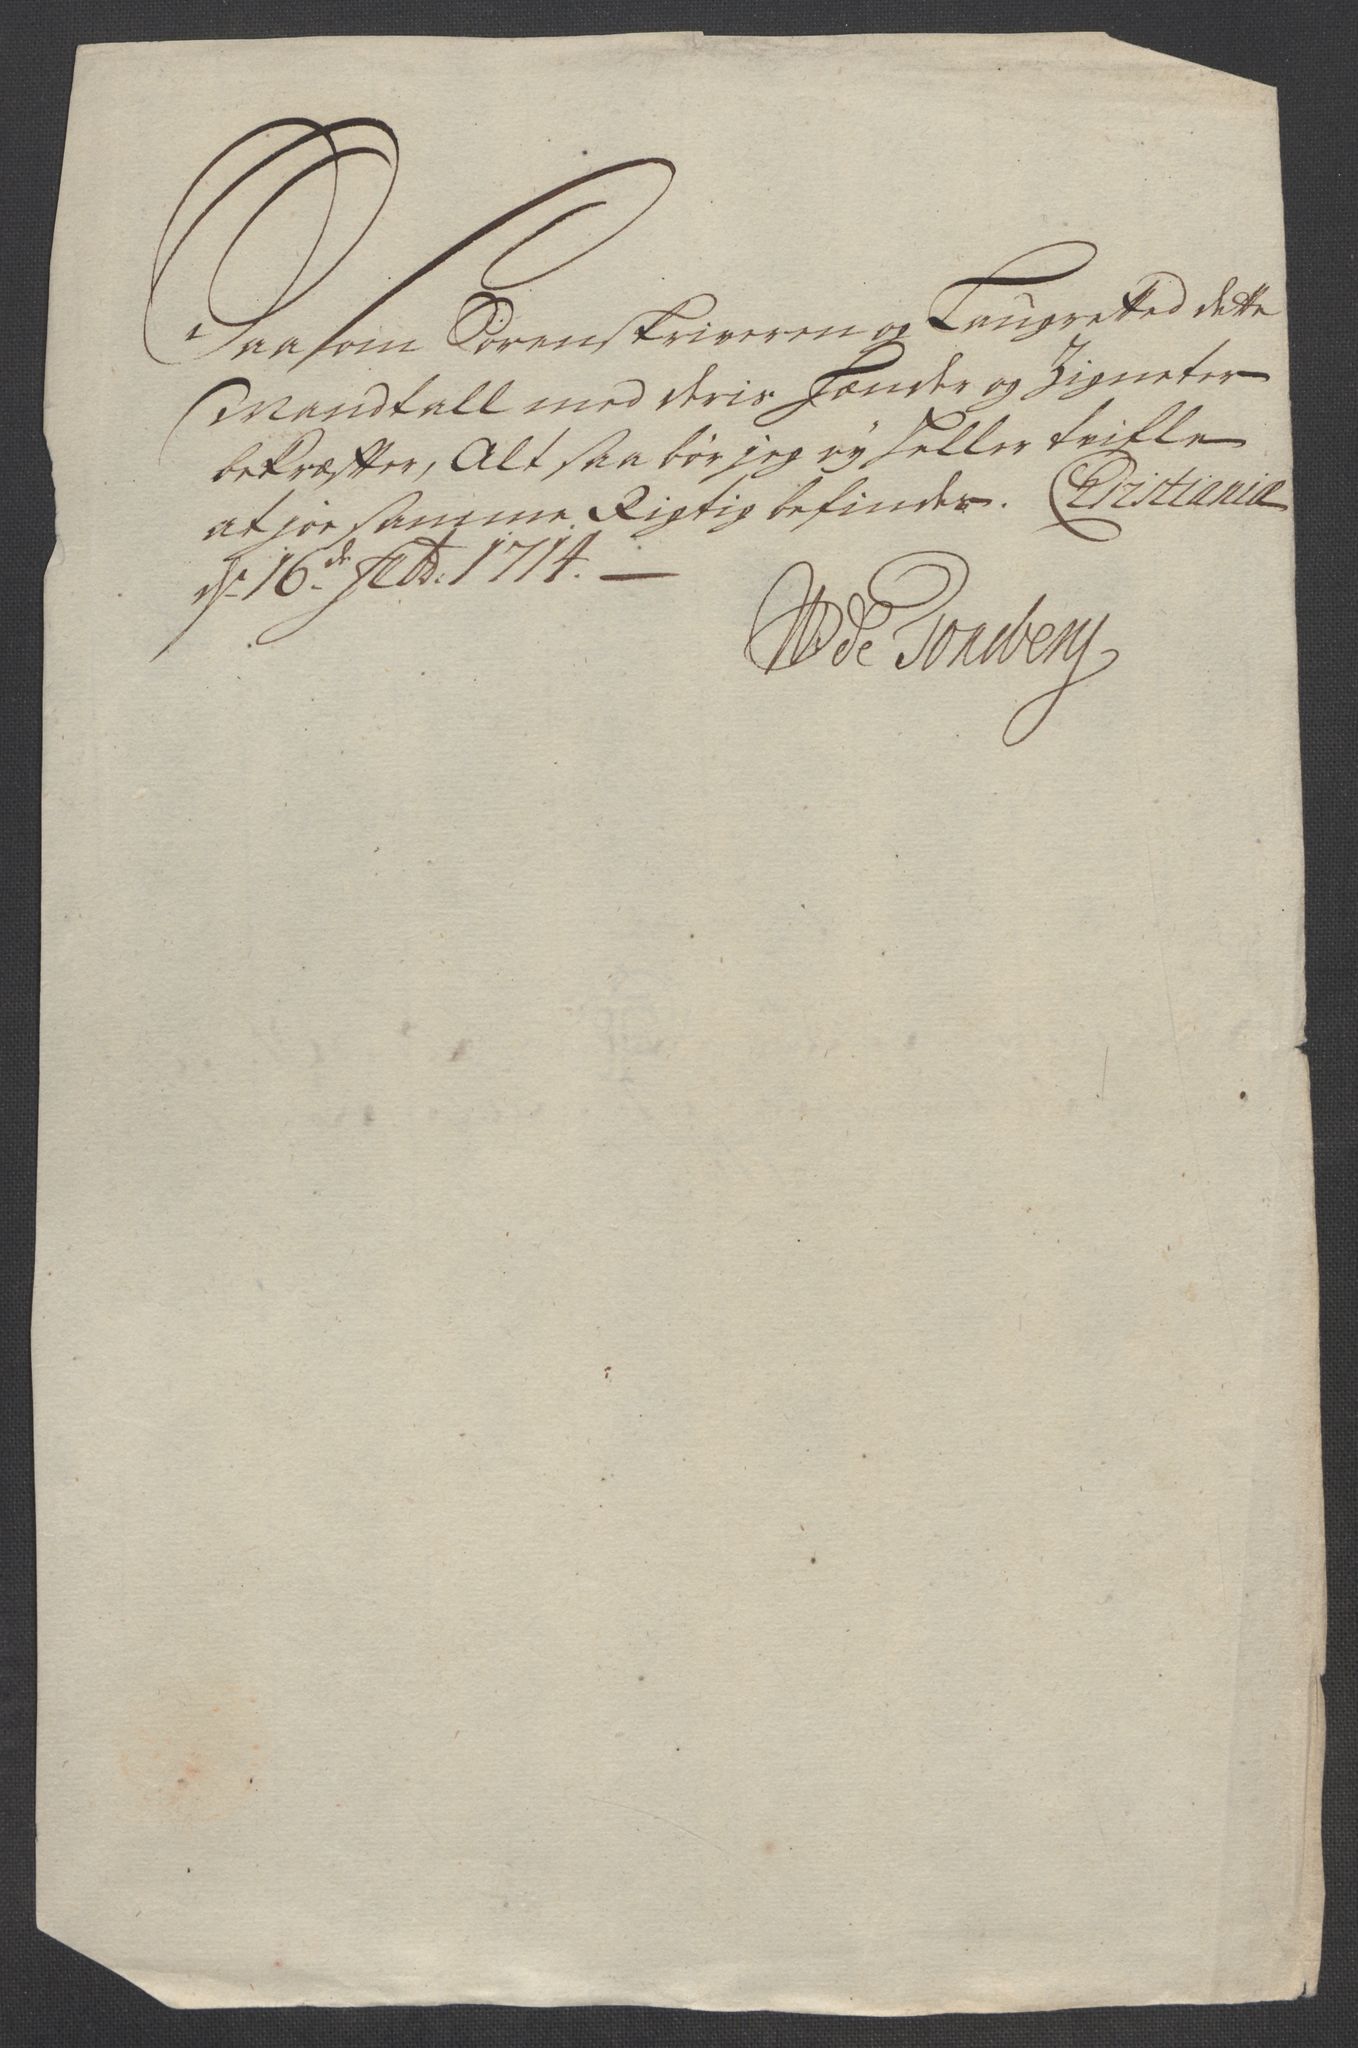 Saasom Sorenskriveren og Laugretted dette
Mandtall med deris Hænder og Zigneter
bekræfter, Alt saa bør jeg ey heller tvifle
at jo samme Rigtig befindes. Christiania
dn 16de Febr. 1714. —
WDde Tonsberg